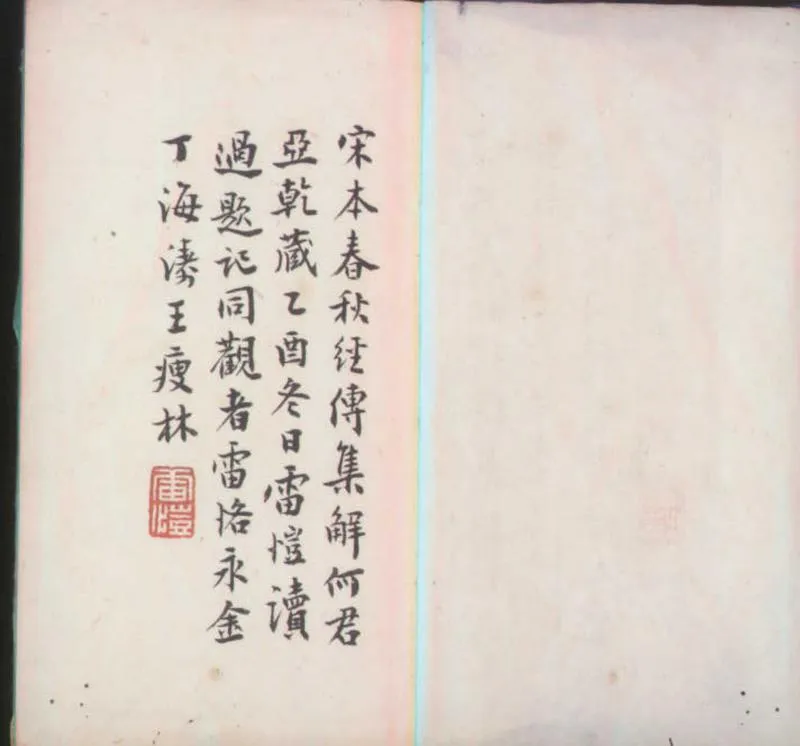 宋本春秋經傳集解何君
亞乾藏乙酉冬日雷愷讀
過題記同觀者雷恪永金
丁海濤王瘦林
雷愷